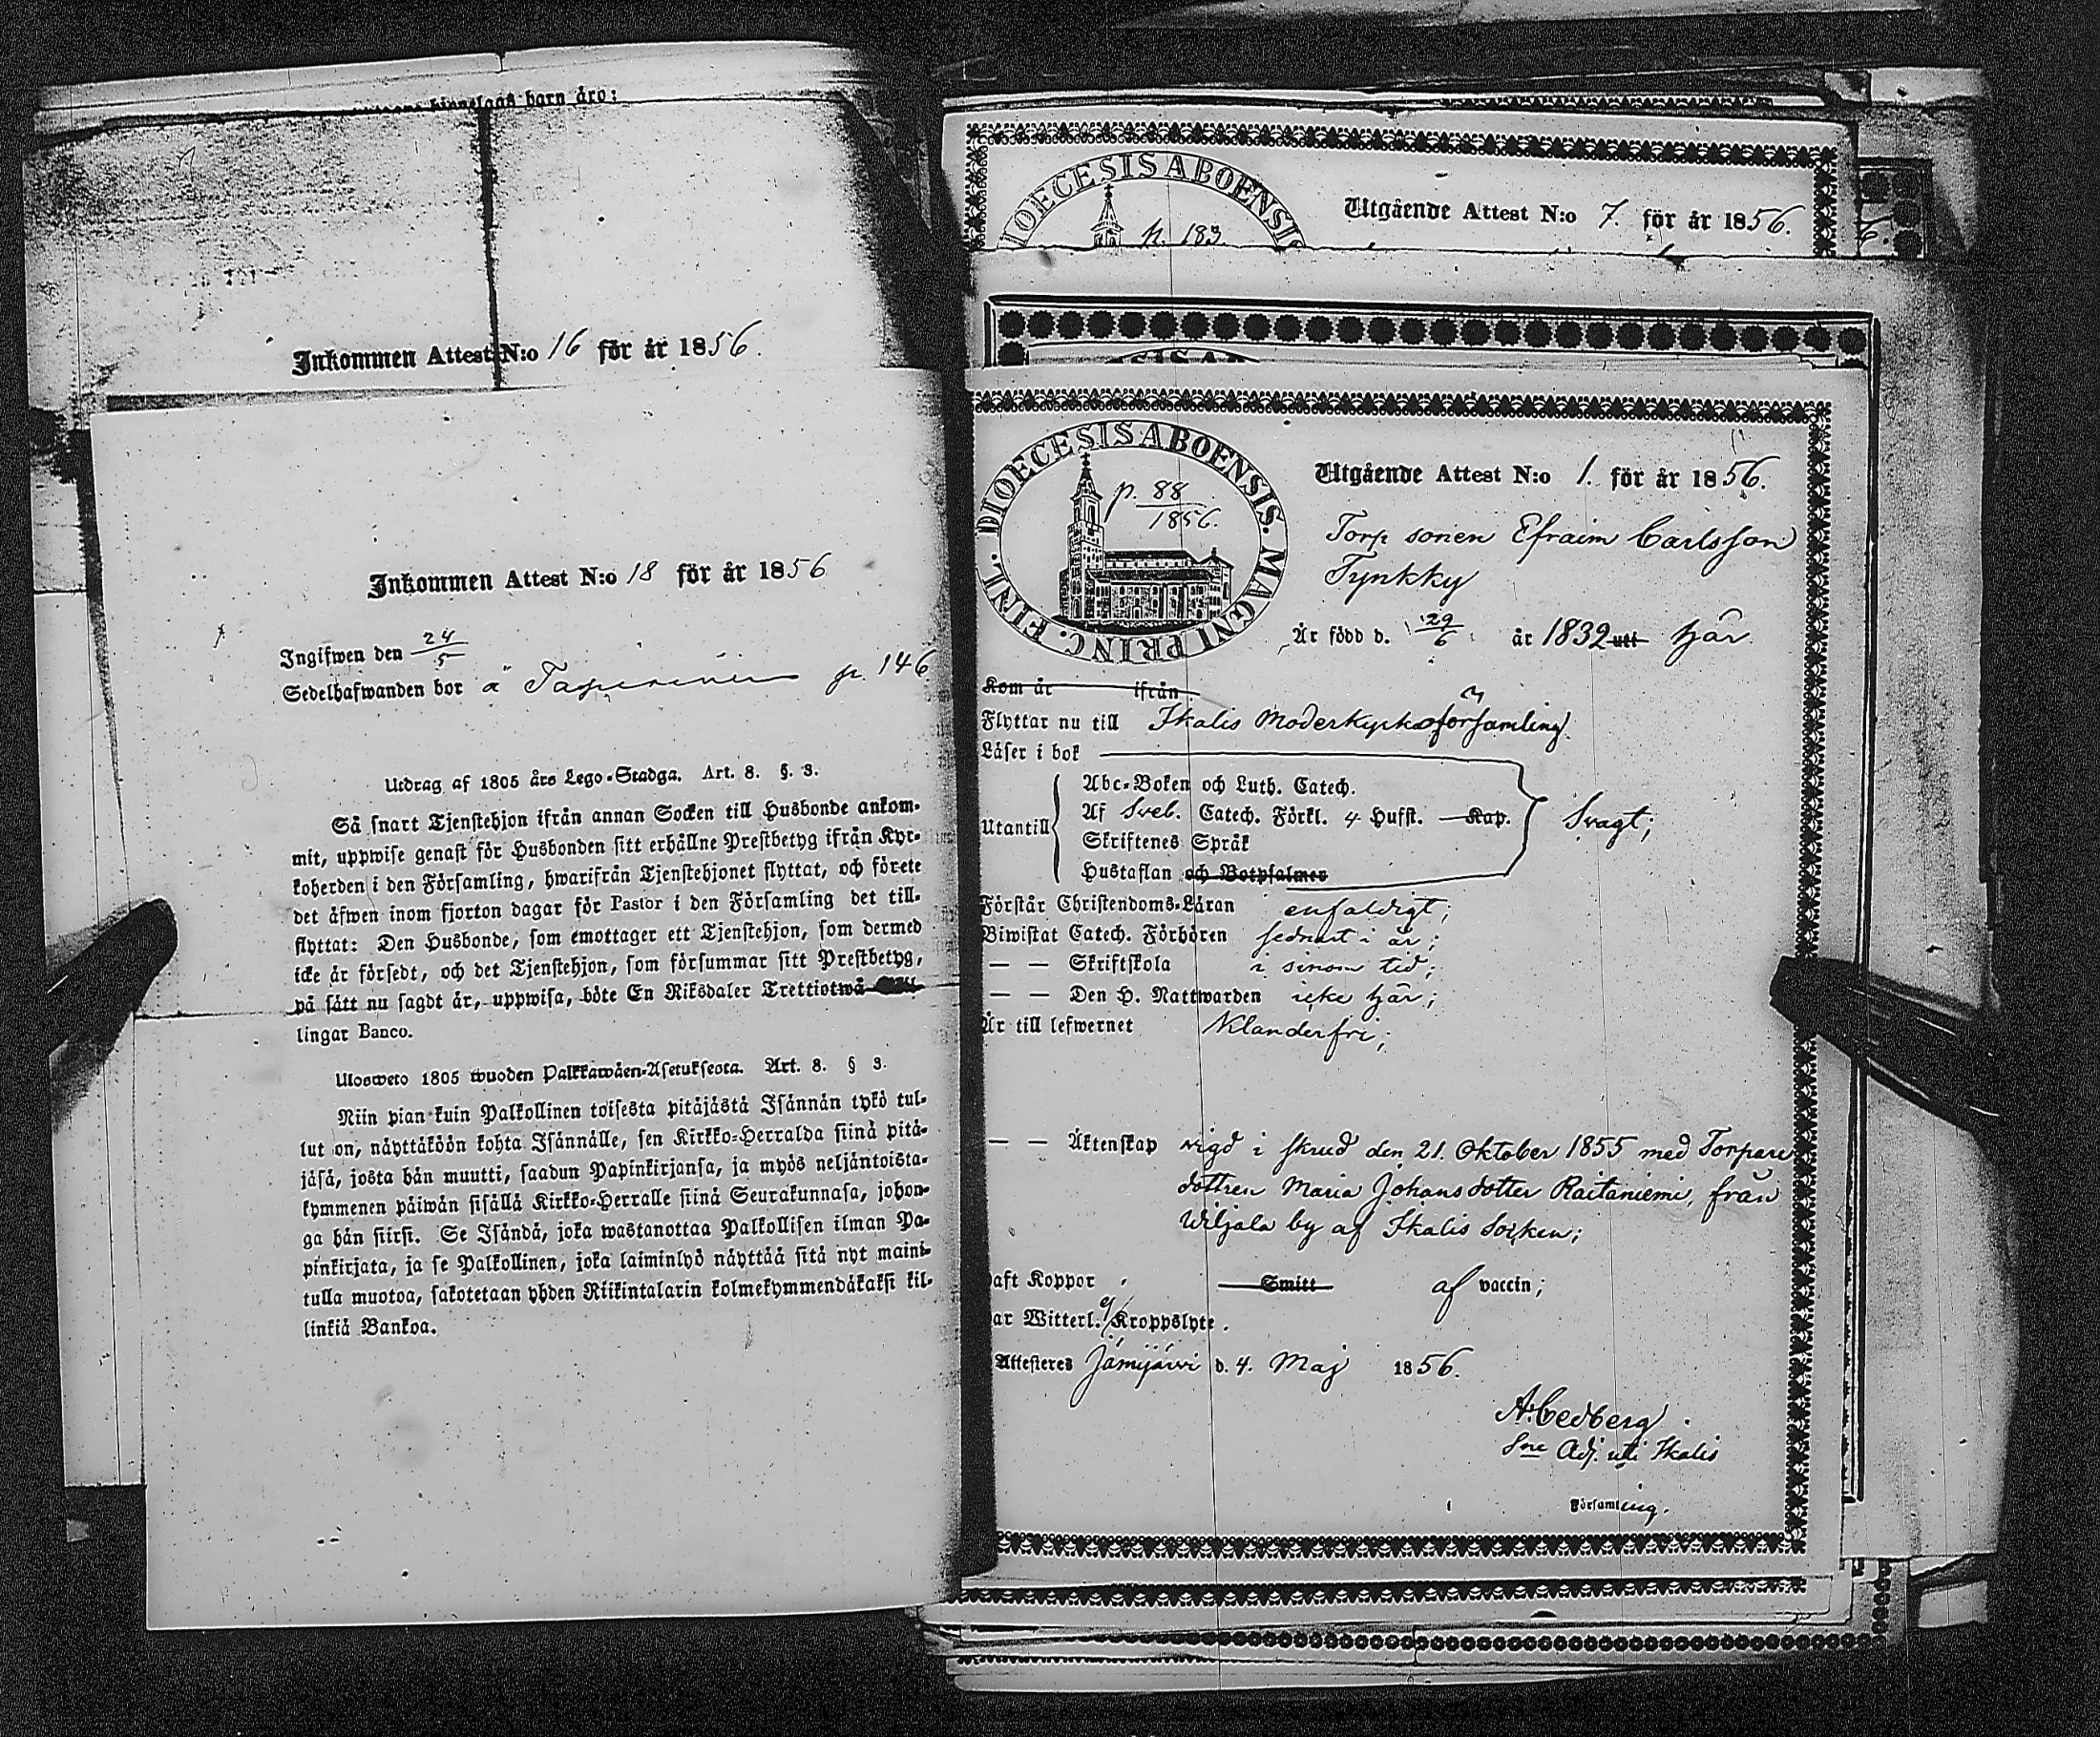 hionelags barn äro:
Inkommen Attest N:o 16 för år 1856.
Inkommen Attest N:o 18 för år 1856
Ingifwen den 24/5
Sedelhafwanden bor å p. 146
Utdrag af 1805 års Lego-Stadga. Art. 8. §. 3.
Så snart Tjenstehjon ifrån annan Socken till Husbonde ankom-
mit, uppwise genast för Husbonden sitt erhållne Prestbetyg ifrån Kyr-
koherden i den Församling, hwarifrån Tjenstehjonet flyttat, och förete
det äfwen inom fjorton dagar för Pastor i den Församling det till-
flyttat: Den Husbonde, som emottager ett Tjenstehjon, som dermed
icke är försedt, och det Tjenstehjon, som försummar sitt Prestbetyg,
på sätt nu sagdt är, uppwisa, böte En Riksdaler Trettiotwå
lingar Banco.
Ulosweto 1805 wuoden Palkkawäen-Asetuksesta. Art. 8. § 3.
Niin pian kuin Palkollinen toisesta pitäjästä Isännän tykö tul-
lut on, näyttäköön kohta Isännälle, sen Kirkko-Herralda siinä pitä-
jäsä, josta hän muutti, saadun Papinkirjansa, ja myös neljäntoista-
kymmenen päiwän sisällä Kirkko-Herralle siinä Seurakunnasa, johon-
ga hän siirsi. Se Isändä, joka wastanottaa Palkollisen ilman Pa-
pinkirjata, ja se Palkollinen, joka laiminlyö näyttää sitä nyt maini-
tulla muotoa, sakotetaan yhden Riikintalarin kolmekymmendäkaksi kil-
linkiä Bankoa.
DIOECESIS ABOENSI
p. 183.
Utgående Attest N:o 7. för år 1856.
DIOECESIS ABOENSIS. MAGNI PRINC. FINL.
p. 88
1856.
Utgående Attest N:o 1. för år 1856.
Torp sonen Efraim Carlsson
Tynkky
Är född d. 29/6 år 1832 uti här
Kom år ifrån
Flyttar nu till Ikalis Moderkyrkoförsamling.
Läser i bok
Utantill
Abc-Boken och Luth. Catech.
Af Sveb. Catech. Förkl. 4 Hufst. Kap.
Skriftenes Språk
Hustaflan och Botpsalmes
Svagt;
Förstår Christendoms-Läran enfaldigt;
Biwistat Catech. Förhören sednast i år;
— — Skriftskola i sinom tid;
— — Den H. Nattwarden icke här;
Är till lefwernet Klanderfri;
— — Äktenskap vigd i skrud den 21. Oktober 1855 med Torpare
dottren Maria Johans dotter Raitaniemi, från
Wiljala by af Ikalis Socken;
aft Koppor Smitt af vaccin;
ar Witterl. ej Kroppslyte.
Attesteres Jämijärvi d. 4. Maj 1856.
A. Cedberg.
Sne Adj. uti Ikalis
Församling.